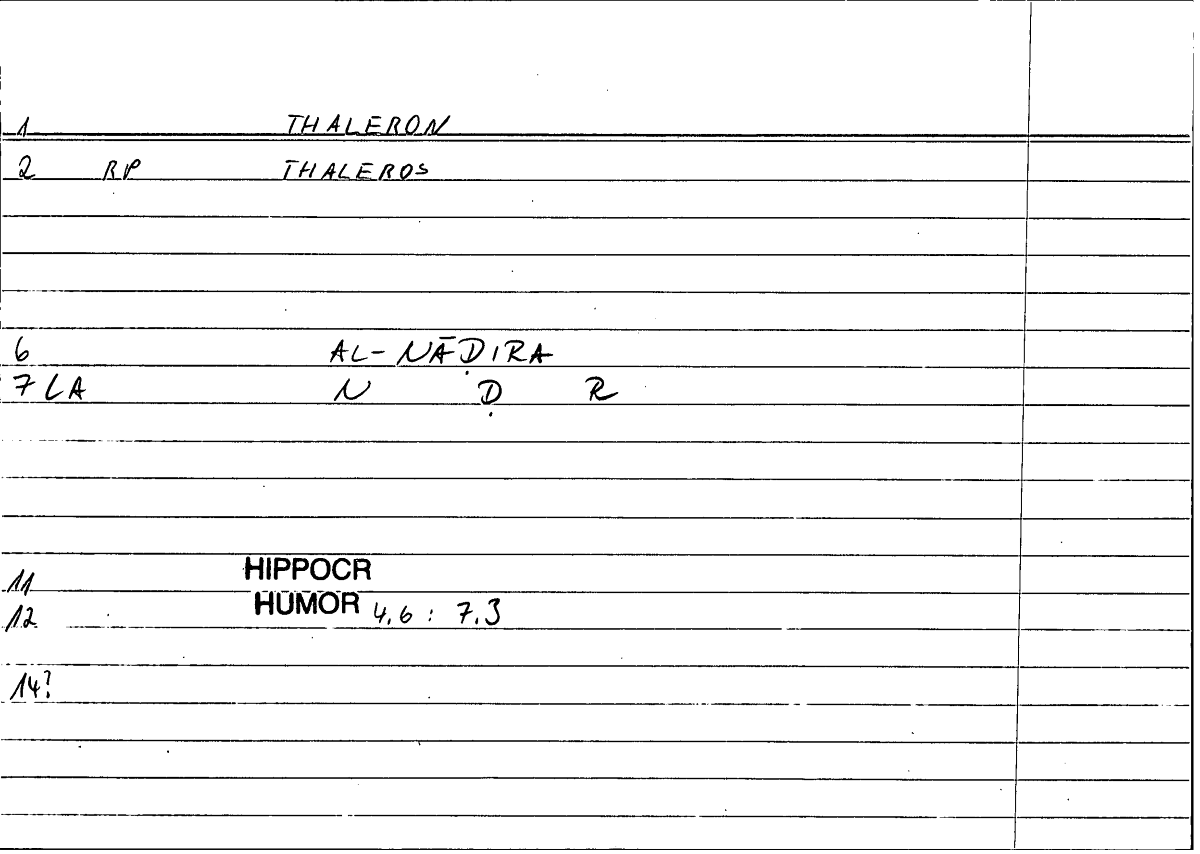 1 THALERON
2 RP THALEROS
6 AL-NĀḌIRA
7 LA N Ḍ R
11 HIPPOCR
12 HUMOR 4.6 : 7.3
14?